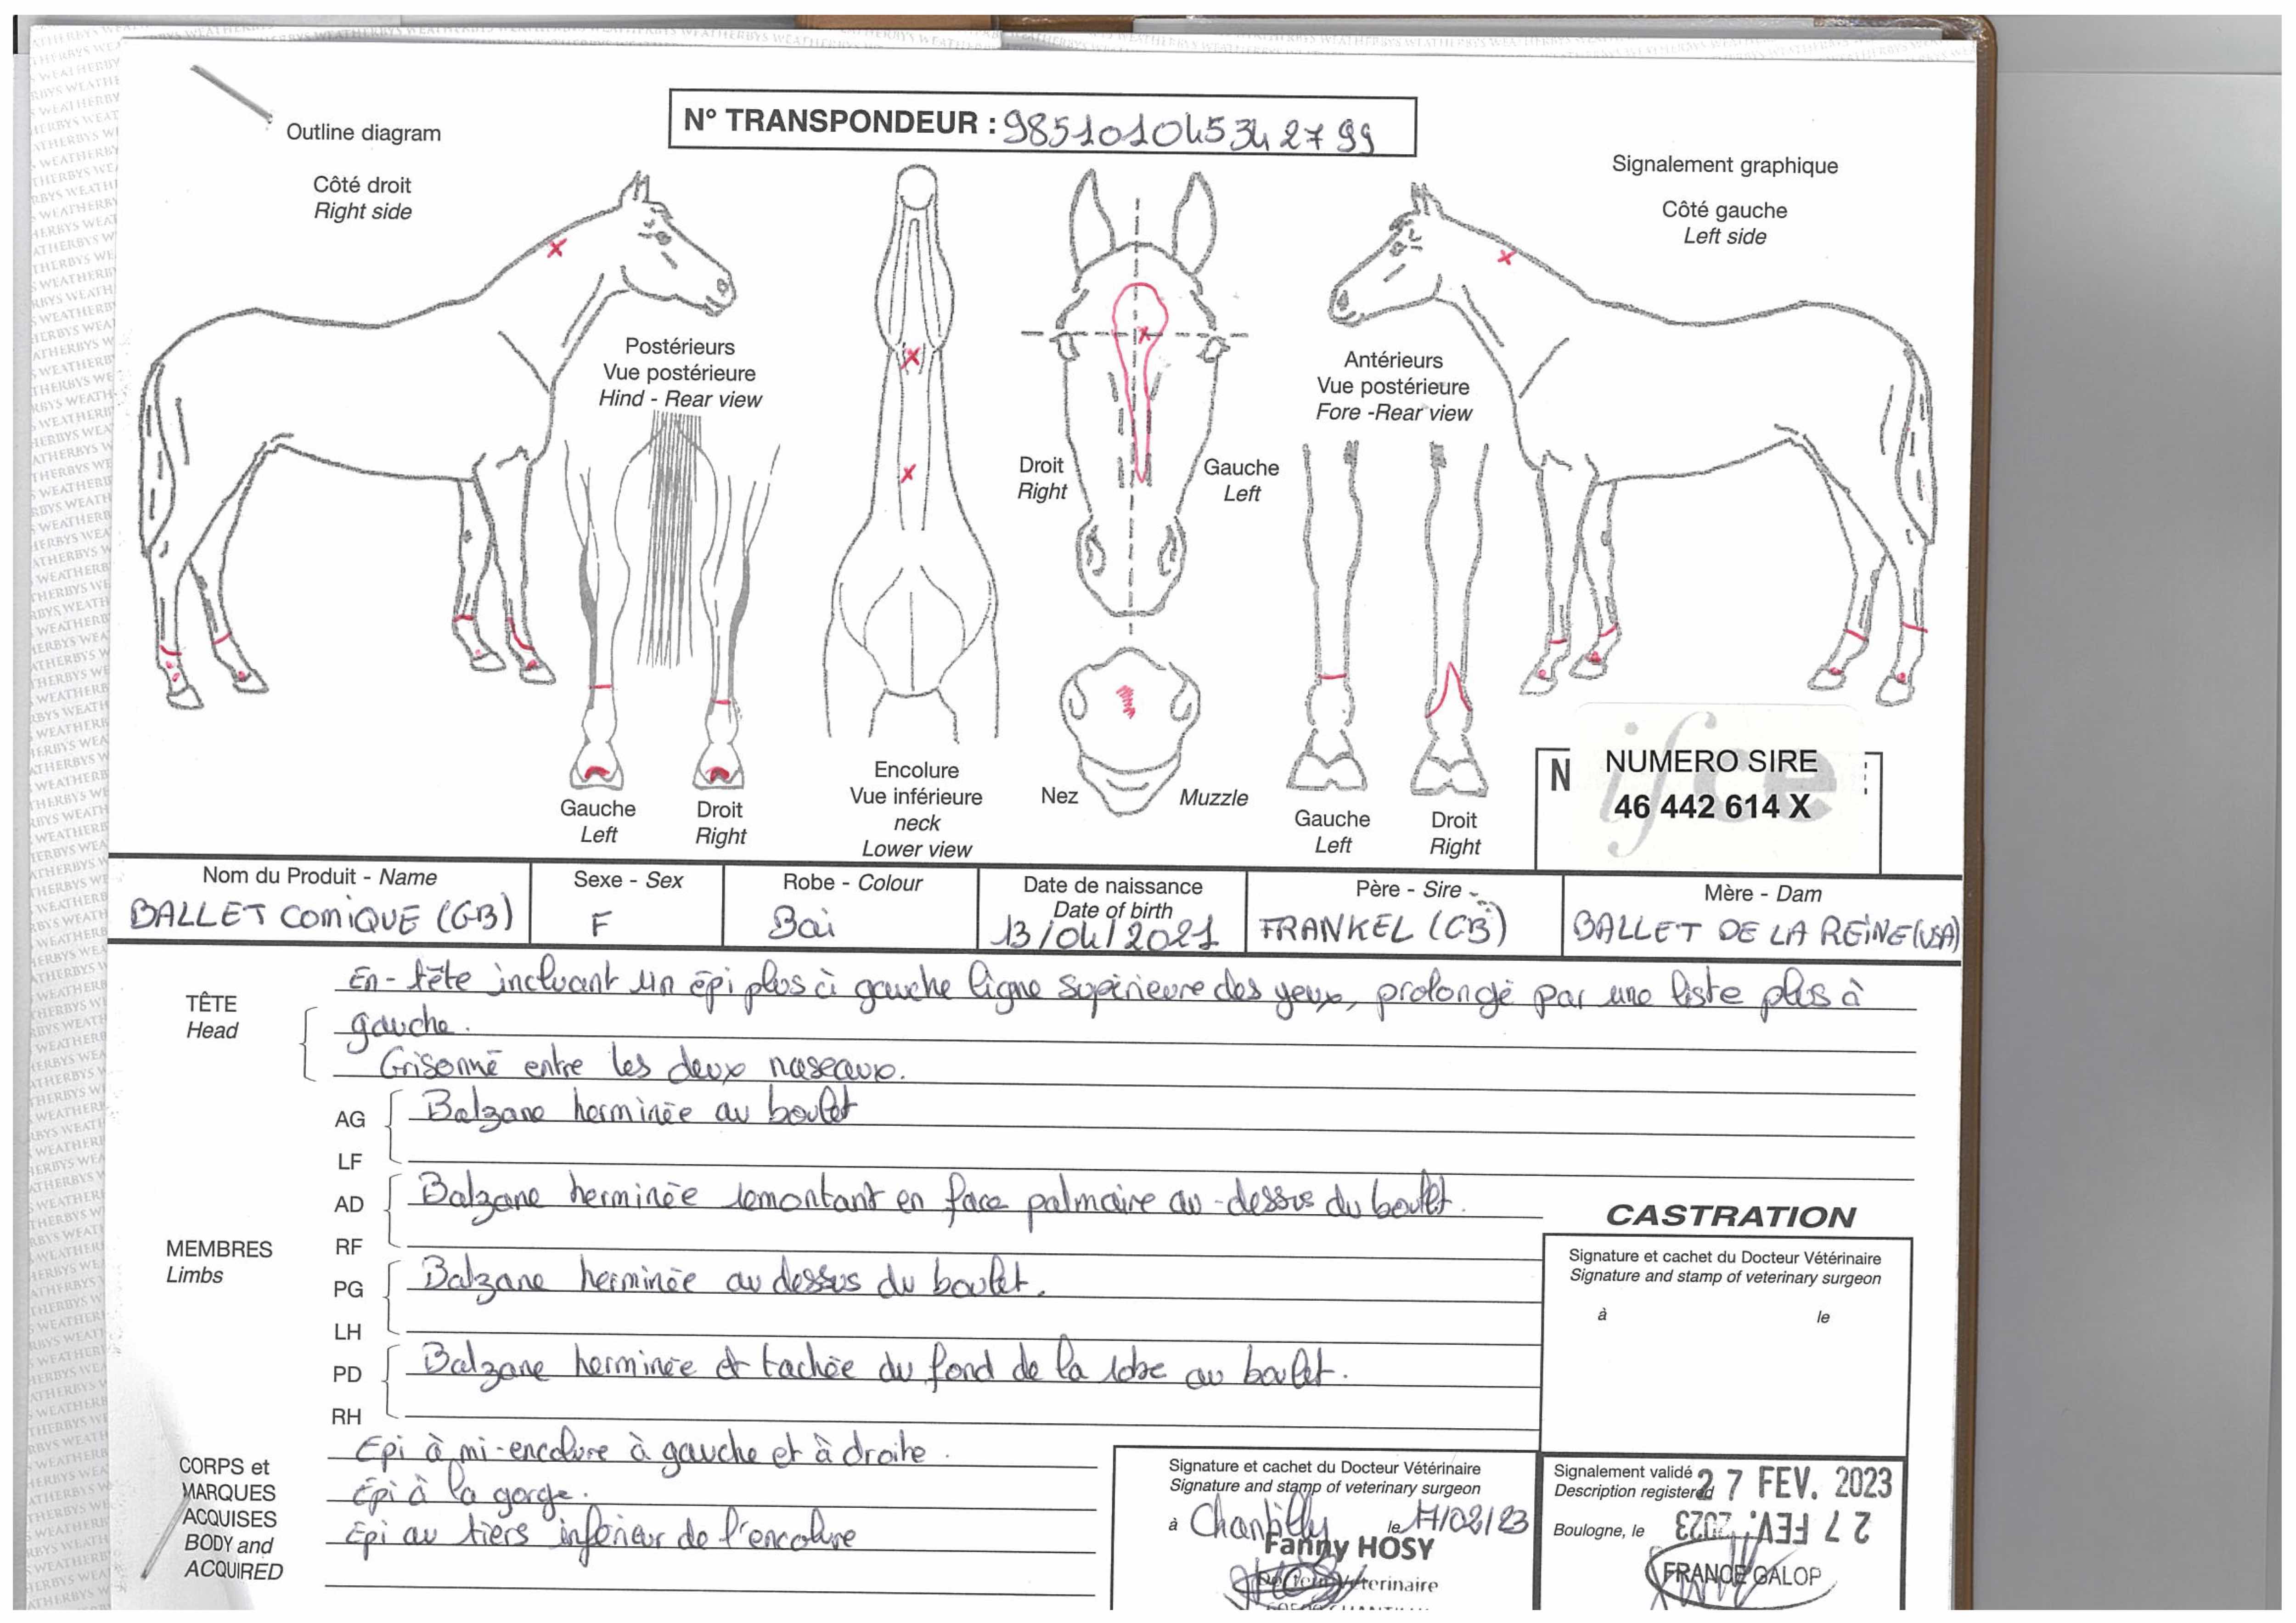 N° TRANSPONDEUR : 985101045342799
Outline diagram
Côté droit
Right side
Signalement graphique
Côté gauche
Left side
Postérieurs
Vue postérieure
Hind - Rear view
Antérieurs
Vue postérieure
Fore -Rear view
Droit
Right
Gauche
Left
Gauche
Left
Droit
Right
Encolure
Vue inférieure
neck
Lower view
Nez
Muzzle
Gauche
Left
Droit
Right
N
ifce
NUMERO SIRE
46 442 614 X
Nom du Produit - Name
Sexe - Sex
Robe - Colour
Date de naissance
Date of birth
Père - Sire
Mère - Dam
BALLET COMIQUE (GB)
F
Bai
13/04/2021
FRANKEL (GB)
BALLET DE LA REINE (USA)
TÊTE
Head
En-tête incluant un épi plus à gauche ligne supérieure des yeux, prolongé par une liste plus à
gauche.
Grisonné entre les deux naseaux.
MEMBRES
Limbs
AG
LF
Balzane herminée au boulet
AD
RF
Balzane herminée remontant en face palmaire au-dessus du boulet.
PG
LH
Balzane herminée au dessus du boulet.
PD
RH
Balzane herminée et tachée du fond de la robe au boulet.
CASTRATION
Signature et cachet du Docteur Vétérinaire
Signature and stamp of veterinary surgeon
à le
CORPS et
MARQUES
ACQUISES
BODY and
ACQUIRED
Epi à mi-encolure à gauche et à droite.
Epi à la gorge.
Epi au tiers inférieur de l'encolure
Signature et cachet du Docteur Vétérinaire
Signature and stamp of veterinary surgeon
à Chantilly le 17/02/23
Fanny HOSY
Docteur Vétérinaire
Signalement validé
Description registered
27 FEV. 2023
Boulogne, le
27 FEV. 2023
FRANCE GALOP
WEATHERBYS